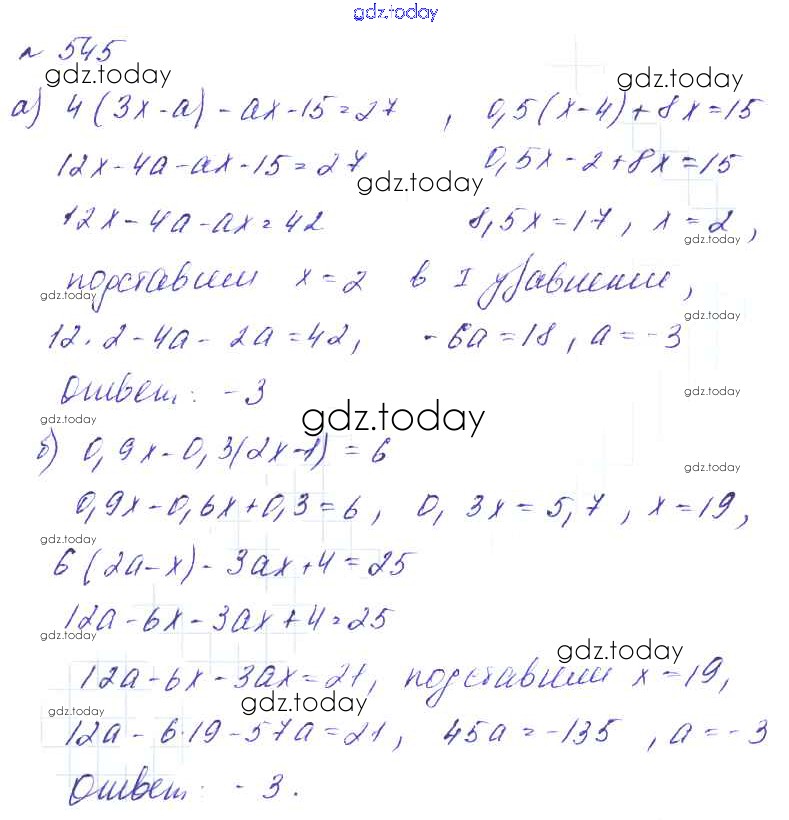 gdz.today
№ 545
gdz.today gdz.today
а) 4(3x-a)-ax-15=27 , 0,5(x-4)+8x=15
12x-4a-ax-15=27 0,5x-2+8x=15
gdz.today
12x-4a-ax=42 8,5x=17, x=2,
gdz.today
подставим x=2 в I уравнение,
gdz.today
gdz.today
12·2-4a-2a=42, -6a=18, a=-3
Ответ: -3
gdz.today
gdz.today
gdz.today
б) 0,9x-0,3(2x-1)=6
gdz.today
0,9x-0,6x+0,3=6, 0,3x=5,7, x=19,
gdz.today
6(2a-x)-3ax+4=25
12a-6x-3ax+4=25
gdz.today
gdz.today
12a-6x-3ax=21, подставим x=19,
gdz.today
gdz.today
12a-6·19-57a=21, 45a=-135, a=-3
Ответ: -3.